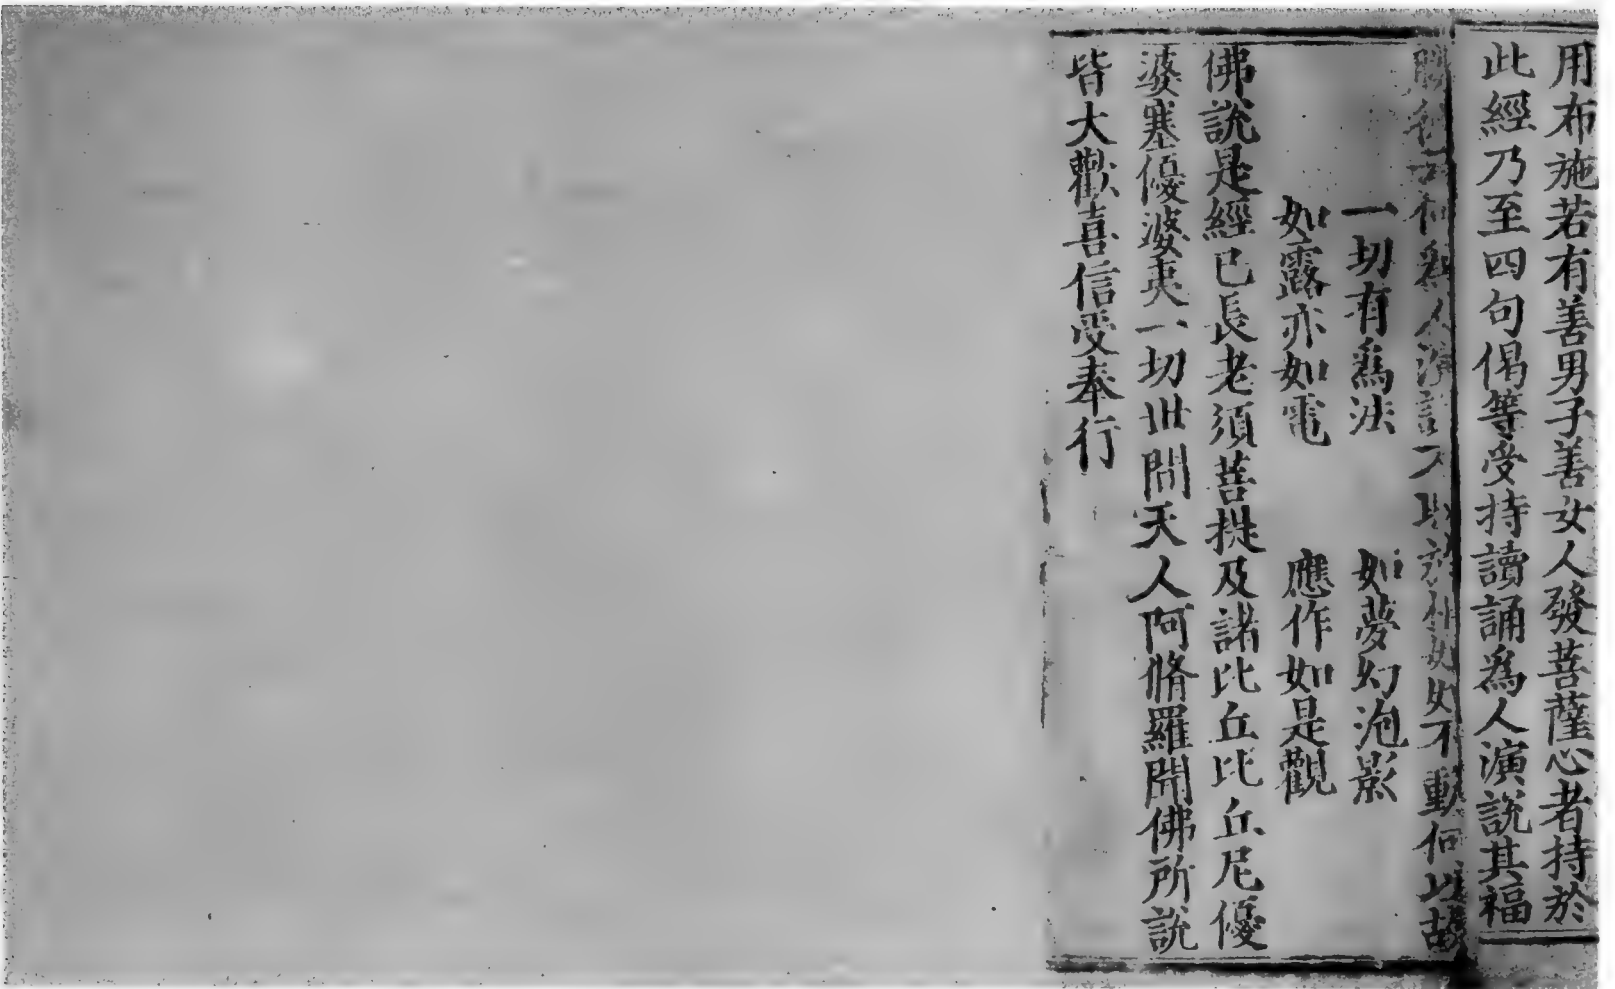 用布施若有善男子善女人發菩薩心者持於
此經乃至四句偈等受持讀誦爲人演說其福
勝彼云何爲人演說不取於相如如不動何以故
一切有爲法　如夢幻泡影
如露亦如電　應作如是觀
佛說是經已長老須菩提及諸比丘比丘尼優
婆塞優婆夷一切世間天人阿脩羅聞佛所說
皆大歡喜信受奉行